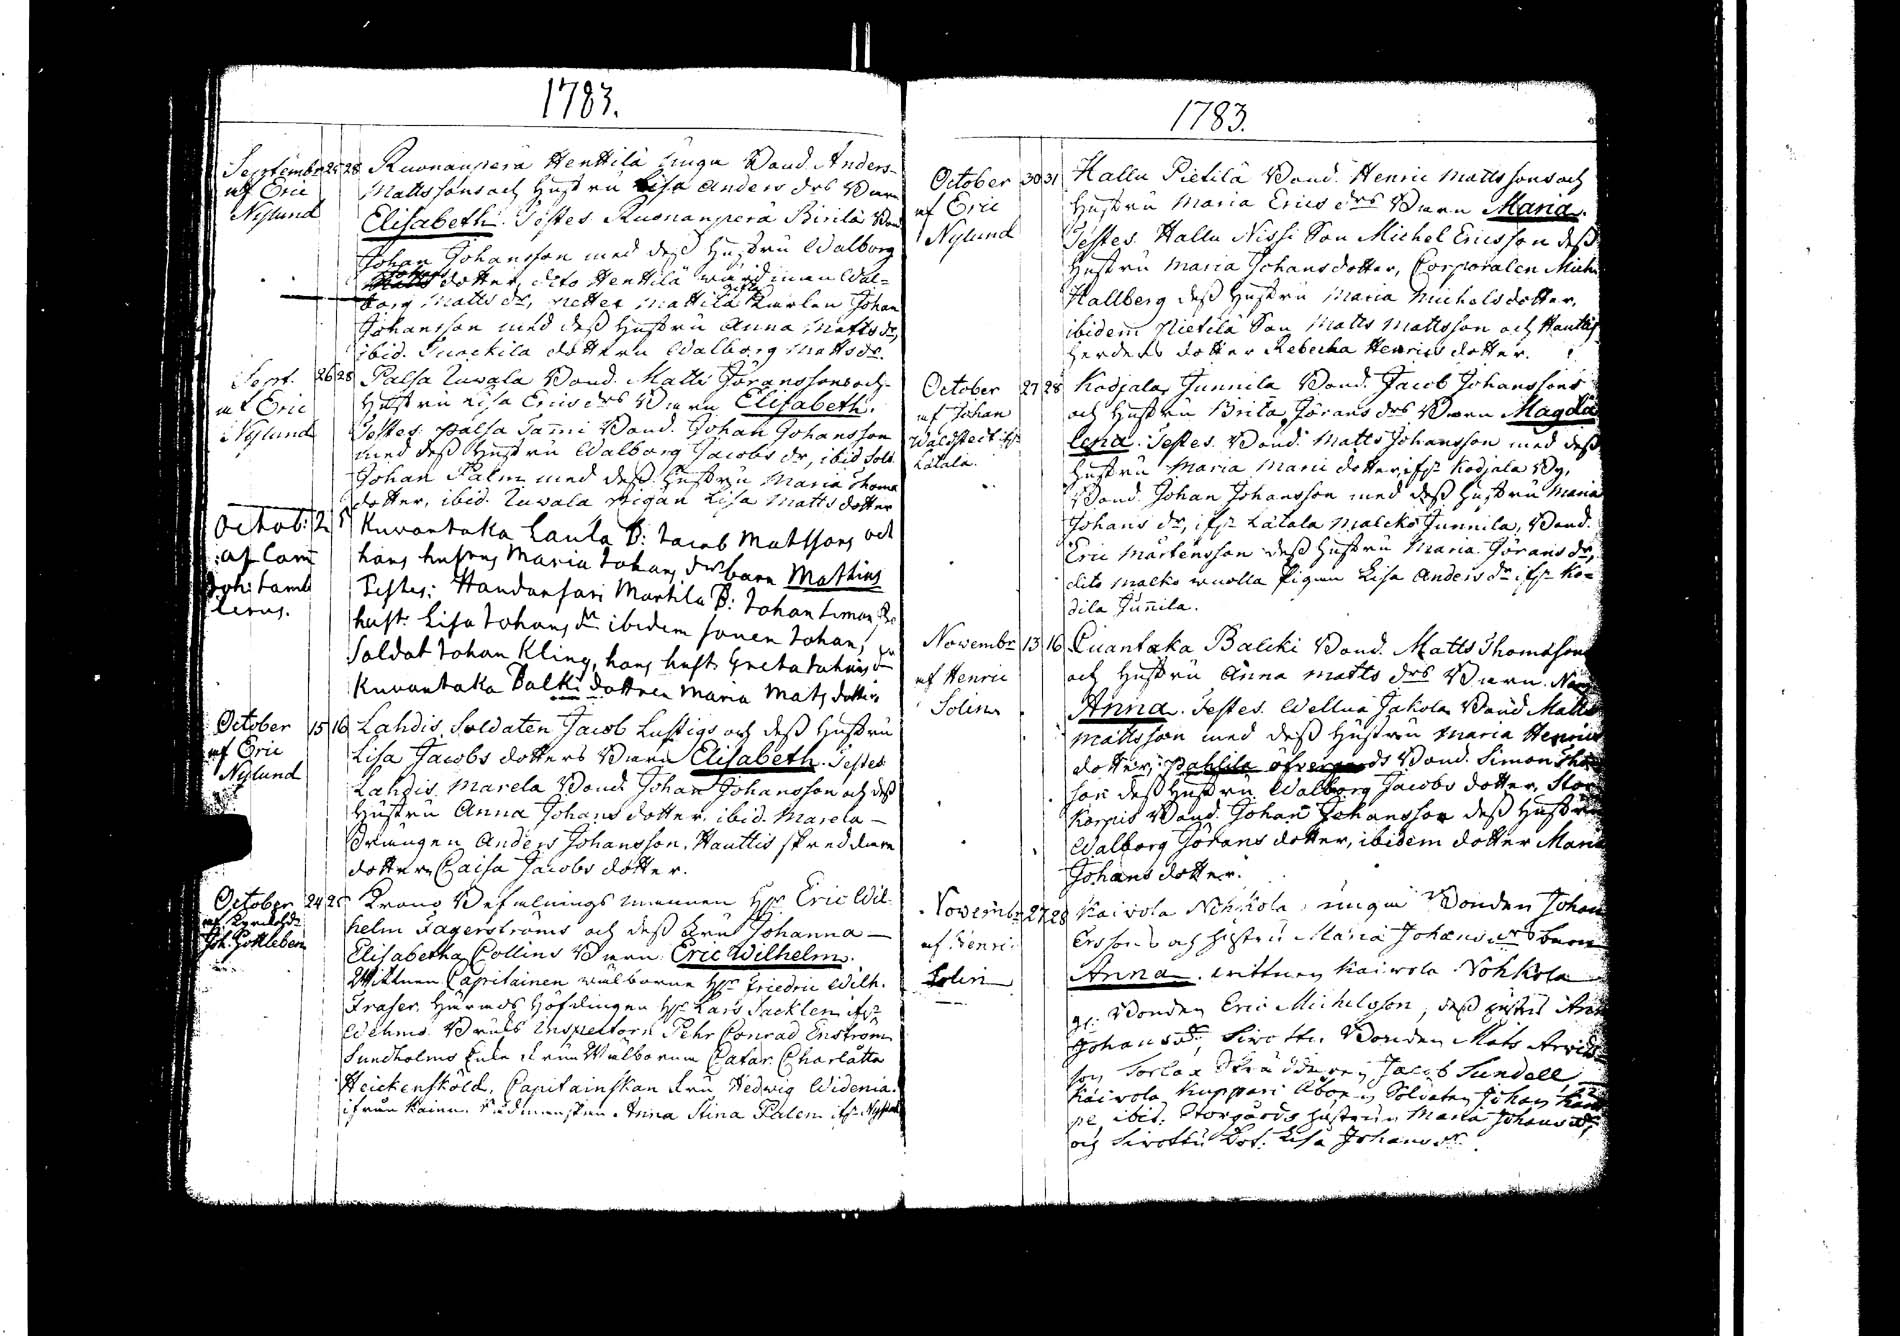 1783.
Septembr 25 28 Ruonanperä Henttilä unga Bond. Anders
af Eric Mattssons och Hustru Lisa Anders drs Barn
Nylund Elisabeth. Testes. Ruonanperä Birilä Bond
Johan Johansson med dess Hustru Walborg
dotter, dito Henttilä wärdinnan Wal-
borg Matts dr, Mattila Karlen Johan
Johansson med dess Hustru Anna Matts dr,
ibid. dotteren Walborg Matts dr.
Sept. 26 28 Palsa Uwala Bond. Matts Jöranssons och
af Eric Hustru Lisa Erics drs Barn Elisabeth.
Nylund Testes. Palsa Bond. Johan Johansson
med dess Hustru Walborg Jacobs dr, ibid Sold.
Johan Palm med dess Hustru Maria Thomæ
dotter, ibid. Uwala pigan Lisa Matts dotter
Octob: 2 5 Kuvantaka Laula B: Jacob Matssons och
af Com hans hustrus Maria Johans drs barn Mathias
Joh: Tamle Testes: Haudansari Marttila B: Johan
lerus. hust. Lisa Johans dr ibidem sonen Johan,
Soldat Johan Kling, hans hust. Greta Johans dr
Kuvantaka Balki dottren Maria Mats dotter
October 15 16 Lahdis Soldaten Jacob Lustigs och dess Hustru
af Eric Lisa Jacobs dotters Barn Elisabeth. Testes
Nylund Lahdis Marela Bond. Johan Johansson och dess
Hustru Anna Johans dotter, ibid. Marela
drängen Anders Johansson, Hauttis skreddaren
dotter Caisa Jacobs dotter.
October 24 25 Krono Befalnings mannen Hr Eric Wil-
af helm Fagerströms och dess Fru Johanna
Joh. Gottleben Elisabetha Collins Barn Eric Wilhelm.
Wittnen Capitainen wälborne Hr Friedric Wilh.
Fraser, Härads Höfdingen Hr Lars Sacklen ifr
Wehmo. Bruks Inspectorn Pehr Conrad Enström
Sundholms Enke Fru Wälborna Catar. Charlotta
Heickensköld. Capitainskan Fru Hedwig Widenia.
ifrån Kaina. Rådmanskan Anna Stina Palem ifr Nystad
1783.
October 30 31 Hallu Pietilä Bond. Henric Mattssons och
af Eric Hustru Maria Erics drs Barn Maria.
Nylund Testes. Hallu Nissi Son Michel Ericsson dess
Hustru Maria Johansdotter, Corporalen Mich.
Hallberg dess Hustru Maria Michelsdotter,
ibidem Pietilä Son Matts Mattsson och Hauttis
Herdens dotter Rebecka Henrics dotter.
October 27 28 Kodjala Junnila Bond. Jacob Johanssons
af Johan och Hustru Brita Jörans drs Barn Magda
Waldstedt ifr lena. Testes. Bond. Matts Johansson med dess
Latala. Hustru Maria dotter ifr Kodjala By,
Bond. Johan Johansson med dess Hustru Maria
Johans dr, ifr Latala Malcko Junnila, Bond.
Eric Mårtensson dess Hustru Maria Jörans dr,
dito Malko wuolla Pigan Lisa Anders dr ifr Ko-
dila Junnila.
Novembr 13 16 Quantaka Balcki Bond. Matts Thomasson
af Henric och Hustru Anna Matts drs Barn
Solin Anna. Testes. Wellua Jakola Bond Matts
Mattsson med dess Hustru Maria Henrics
dotter, Pahlila öfvergårds Bond. Simon
son dess Hustru Walborg Jacobs dotter, Stor
Korpis Bond. Johan Johansson dess Hustru
Walborg Jörans dotter, ibidem dotter Maria
Johans dotter.
Novembr 27 28 Kaivola Nohkola unga Bonden Johan
af Henric Erssons och hustru Maria Johans drs barn
Solin Anna. wittnen Kaivola Nohkola
gl. Bonden Eric Michelsson, dess hustru
Johans dr, Sirotti Bonden Mats Arvids-
son Sorlax Skräddaren Jacob Sundell,
Kaivola Kuppari Åboen Soldaten Johan
pe, ibid. Storgårds hustrun Maria Johans dr,
och Sirotti Dot: Lisa Johans dr.